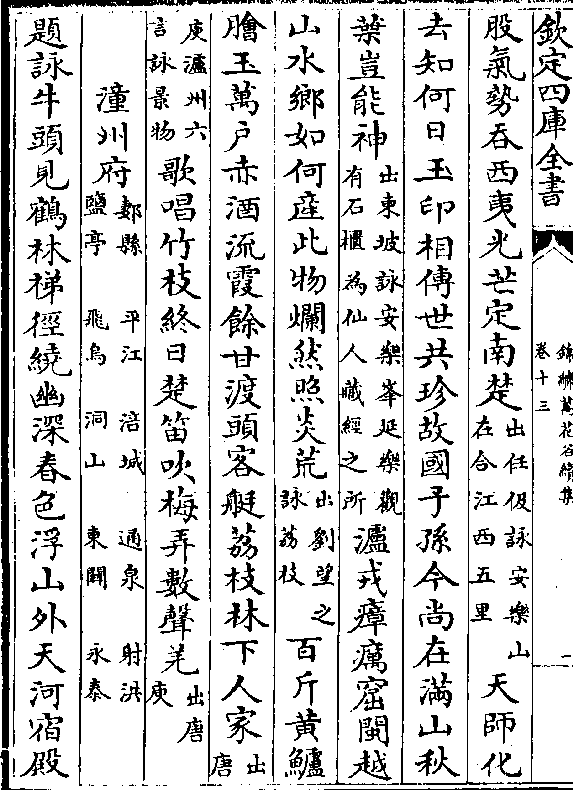 欽定四庫全書
錦繡萬花谷續集
卷十三
一
股氣勢吞西夷光芒定南楚出任伋詠安樂山在合江西五里天師化
去知何日玉印相傳世共珍故國子孫今尚在滿山秋
葉豈能神出東坡詠安樂峯延樂觀有石櫃為仙人藏經之所瀘戎瘴癘窟閩越
山水鄉如何產此物爛然照炎荒出劉望之詠荔枝百斤黃鱸
膾玉萬戶赤酒流霞餘甘渡頭客艇荔枝林下人家出唐
庚瀘州六言詠景物歌唱竹枝終日楚笛吹梅弄數聲羌出唐庚
潼州府郪縣平江涪城通泉射洪鹽亭飛烏洞山東關永泰
題詠牛頭見鶴林梯徑繞幽深春色浮山外天河宿殿